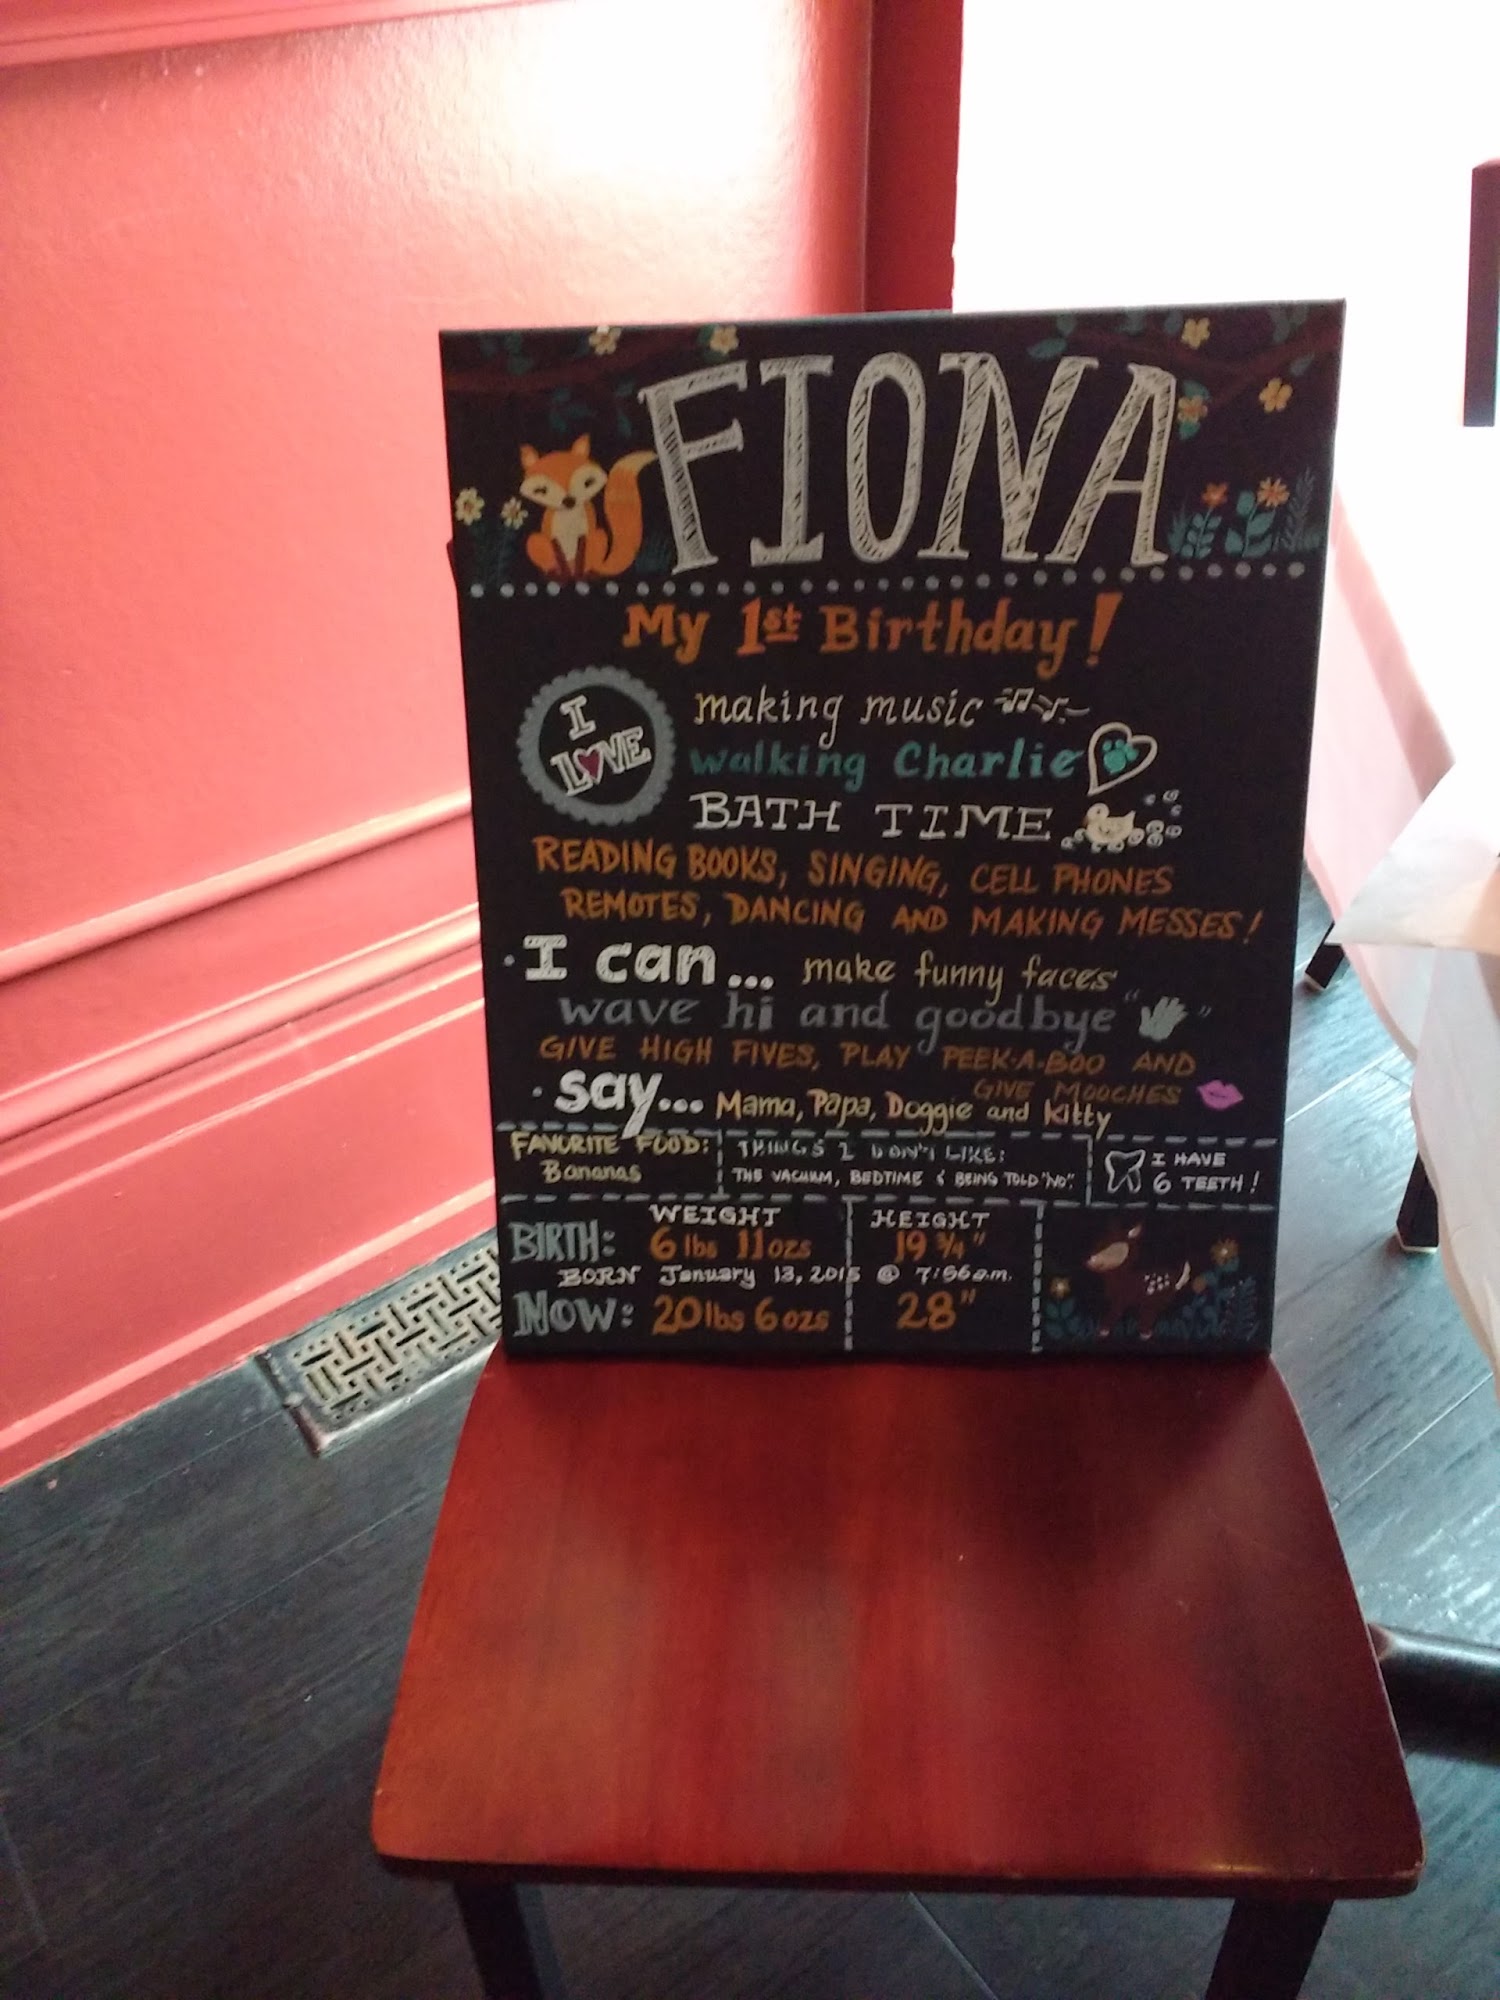 FIONA
My 1st Birthday!
I LOVE
making music
walking Charlie
BATH TIME
READING BOOKS, SINGING, CELL PHONES
REMOTES, DANCING AND MAKING MESSES!
· I can... make funny faces
wave hi and goodbye " "
GIVE HIGH FIVES, PLAY PEEK-A-BOO AND
GIVE MOOCHES
· say... Mama, Papa, Doggie and Kitty
FAVORITE FOOD:
Bananas
THINGS I DON'T LIKE:
THE VACUUM, BEDTIME & BEING TOLD "NO".
I HAVE
6 TEETH!
WEIGHT HEIGHT
BIRTH: 6 lbs 11 ozs 19 3/4"
BORN January 13, 2015 @ 7:56 a.m.
NOW: 20 lbs 6 ozs 28"